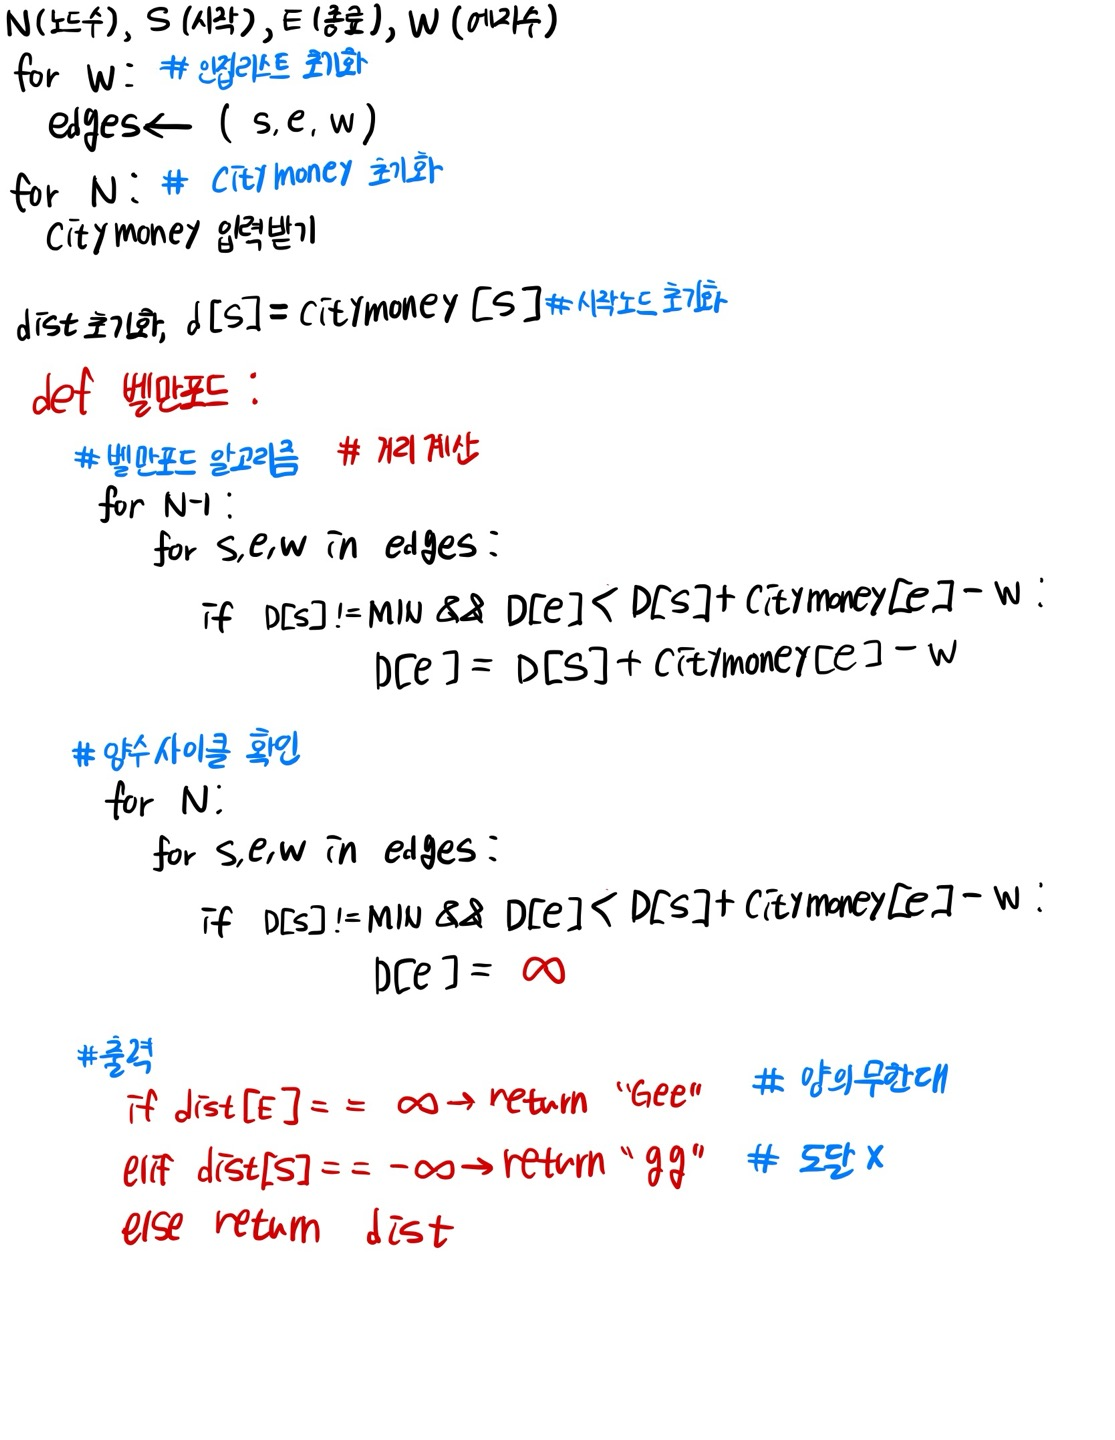 N(노드수), S (시작), E (종료), W (에지수)
for W: # 인접리스트 초기화
edges← ( s, e, w)
for N: # City money 초기화
City money 입력받기
dist 초기화, d[S] = citymoney [S] #시작노드 초기화
def 벨만포드 :
# 벨만포드 알고리즘 # 거리 계산
for N-1 :
for s,e,w in edges :
if D[s] != MIN && D[e] < D[s] + City money[e] - w :
D[e] = D[S] + City money[e] - w
# 양수사이클 확인
for N:
for s,e,w in edges :
if D[s] != MIN && D[e] < D[s] + City money[e] - w :
D[e] = ∞
#출력
if dist[E] = = ∞ → return "Gee" # 양의무한대
elif dist[S] = = -∞ → return "gg" # 도달 X
else return dist